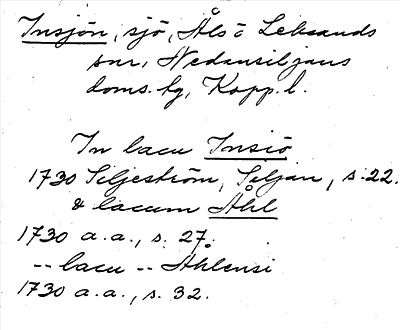 Insjön, sjö, Åls o Leksands
snr, Nedansiljans
doms.hg, Kopp.l.
In lacu Insiö
1730 Siljeström, Siljan, s.22.
& lacum Åhl
1730 a.a., s. 27.
-- lacu -- Ahlensi
1730 a.a., s. 32.